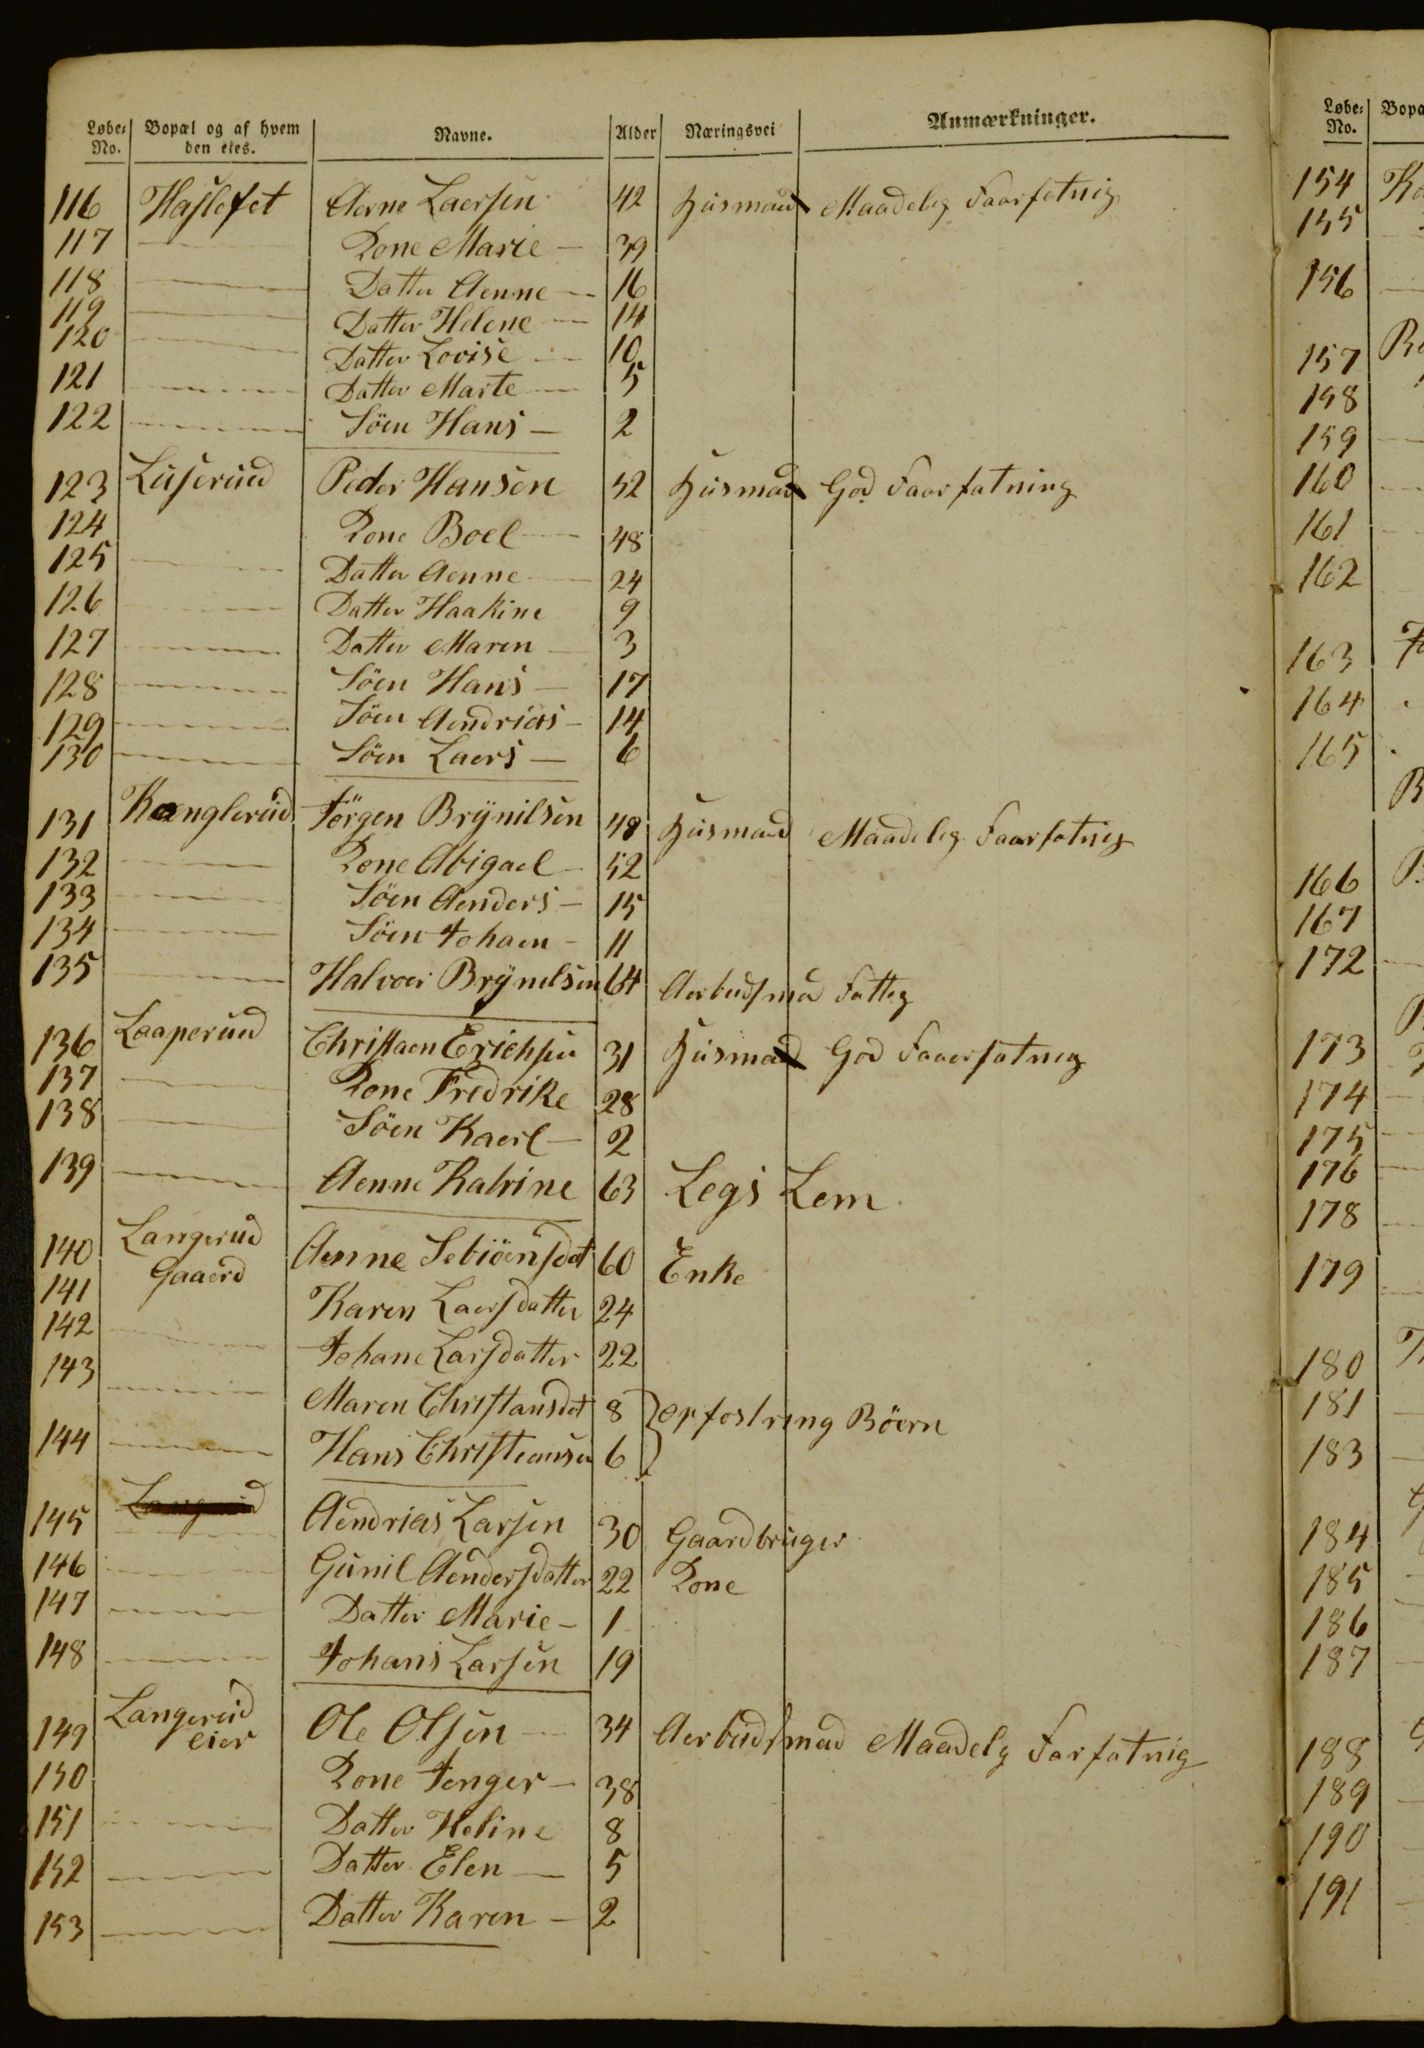 Løbe-No. Bopæl og af hvem den eies. Navne. Alder Næringsvei Anmærkninger.
116 Haslefet Aerne Laersen 42 Husmand Maadelig Faarfatnig
117 Kone Marie 39
118 Datter Aenne 16
119 Datter Helene 14
120 Datter Lovise 10
121 Datter Marte 5
122 Söen Hans 2
123 Luserud Peder Hansen 52 Husmand God Faarfatning
124 Kone Boel 48
125 Datter Aenne 24
126 Datter Haakine 9
127 Datter Maren 3
128 Söen Hans 17
129 Söen Aendrias 14
130 Söen Laers 6
131 Kænglerud Jörgen Brÿnilsen 48 Husmand Maadelig Faarfatnig
132 Kone Abigael 52
133 Söen Aenders 15
134 Söen Johaen 11
135 Halvoer Brÿnelsen 64 Aerbeidsmad Fatteg
136 Laaperud Christaen Erichsen 31 Husmand God Faaerfatneg
137 Kone Fredrike 28
138 Söen Kaerl 2
139 Aenne Katrine 63 Legs Lem
140 Langerud Aenne Sebiöensdat 60 Enke
141 Gaaerd Karen Laersdatter 24
142 Johane Larsdatter 22
143 Maren Christansdat 8 opfostring Böern
144 Hans Christiansen 6
145 Aendrias Larsen 30 Gaardbruger
146 Gunil Aendersdatter 22 Kone
147 Datter Marie 1
148 Johans Larsen 19
149 Langerud eier Ole Olsen 34 Aerbeidsmad Maadelg Farfatnig
150 Kone Jenger 38
151 Datter Heline 8
152 Datter Elen 5
153 Datter Karen 2
Løbe-No.
154
155
156
157
158
159
160
161
162
163
164
165
166
167
172
173
174
175
176
178
179
180
181
183
184
185
186
187
188
189
190
191